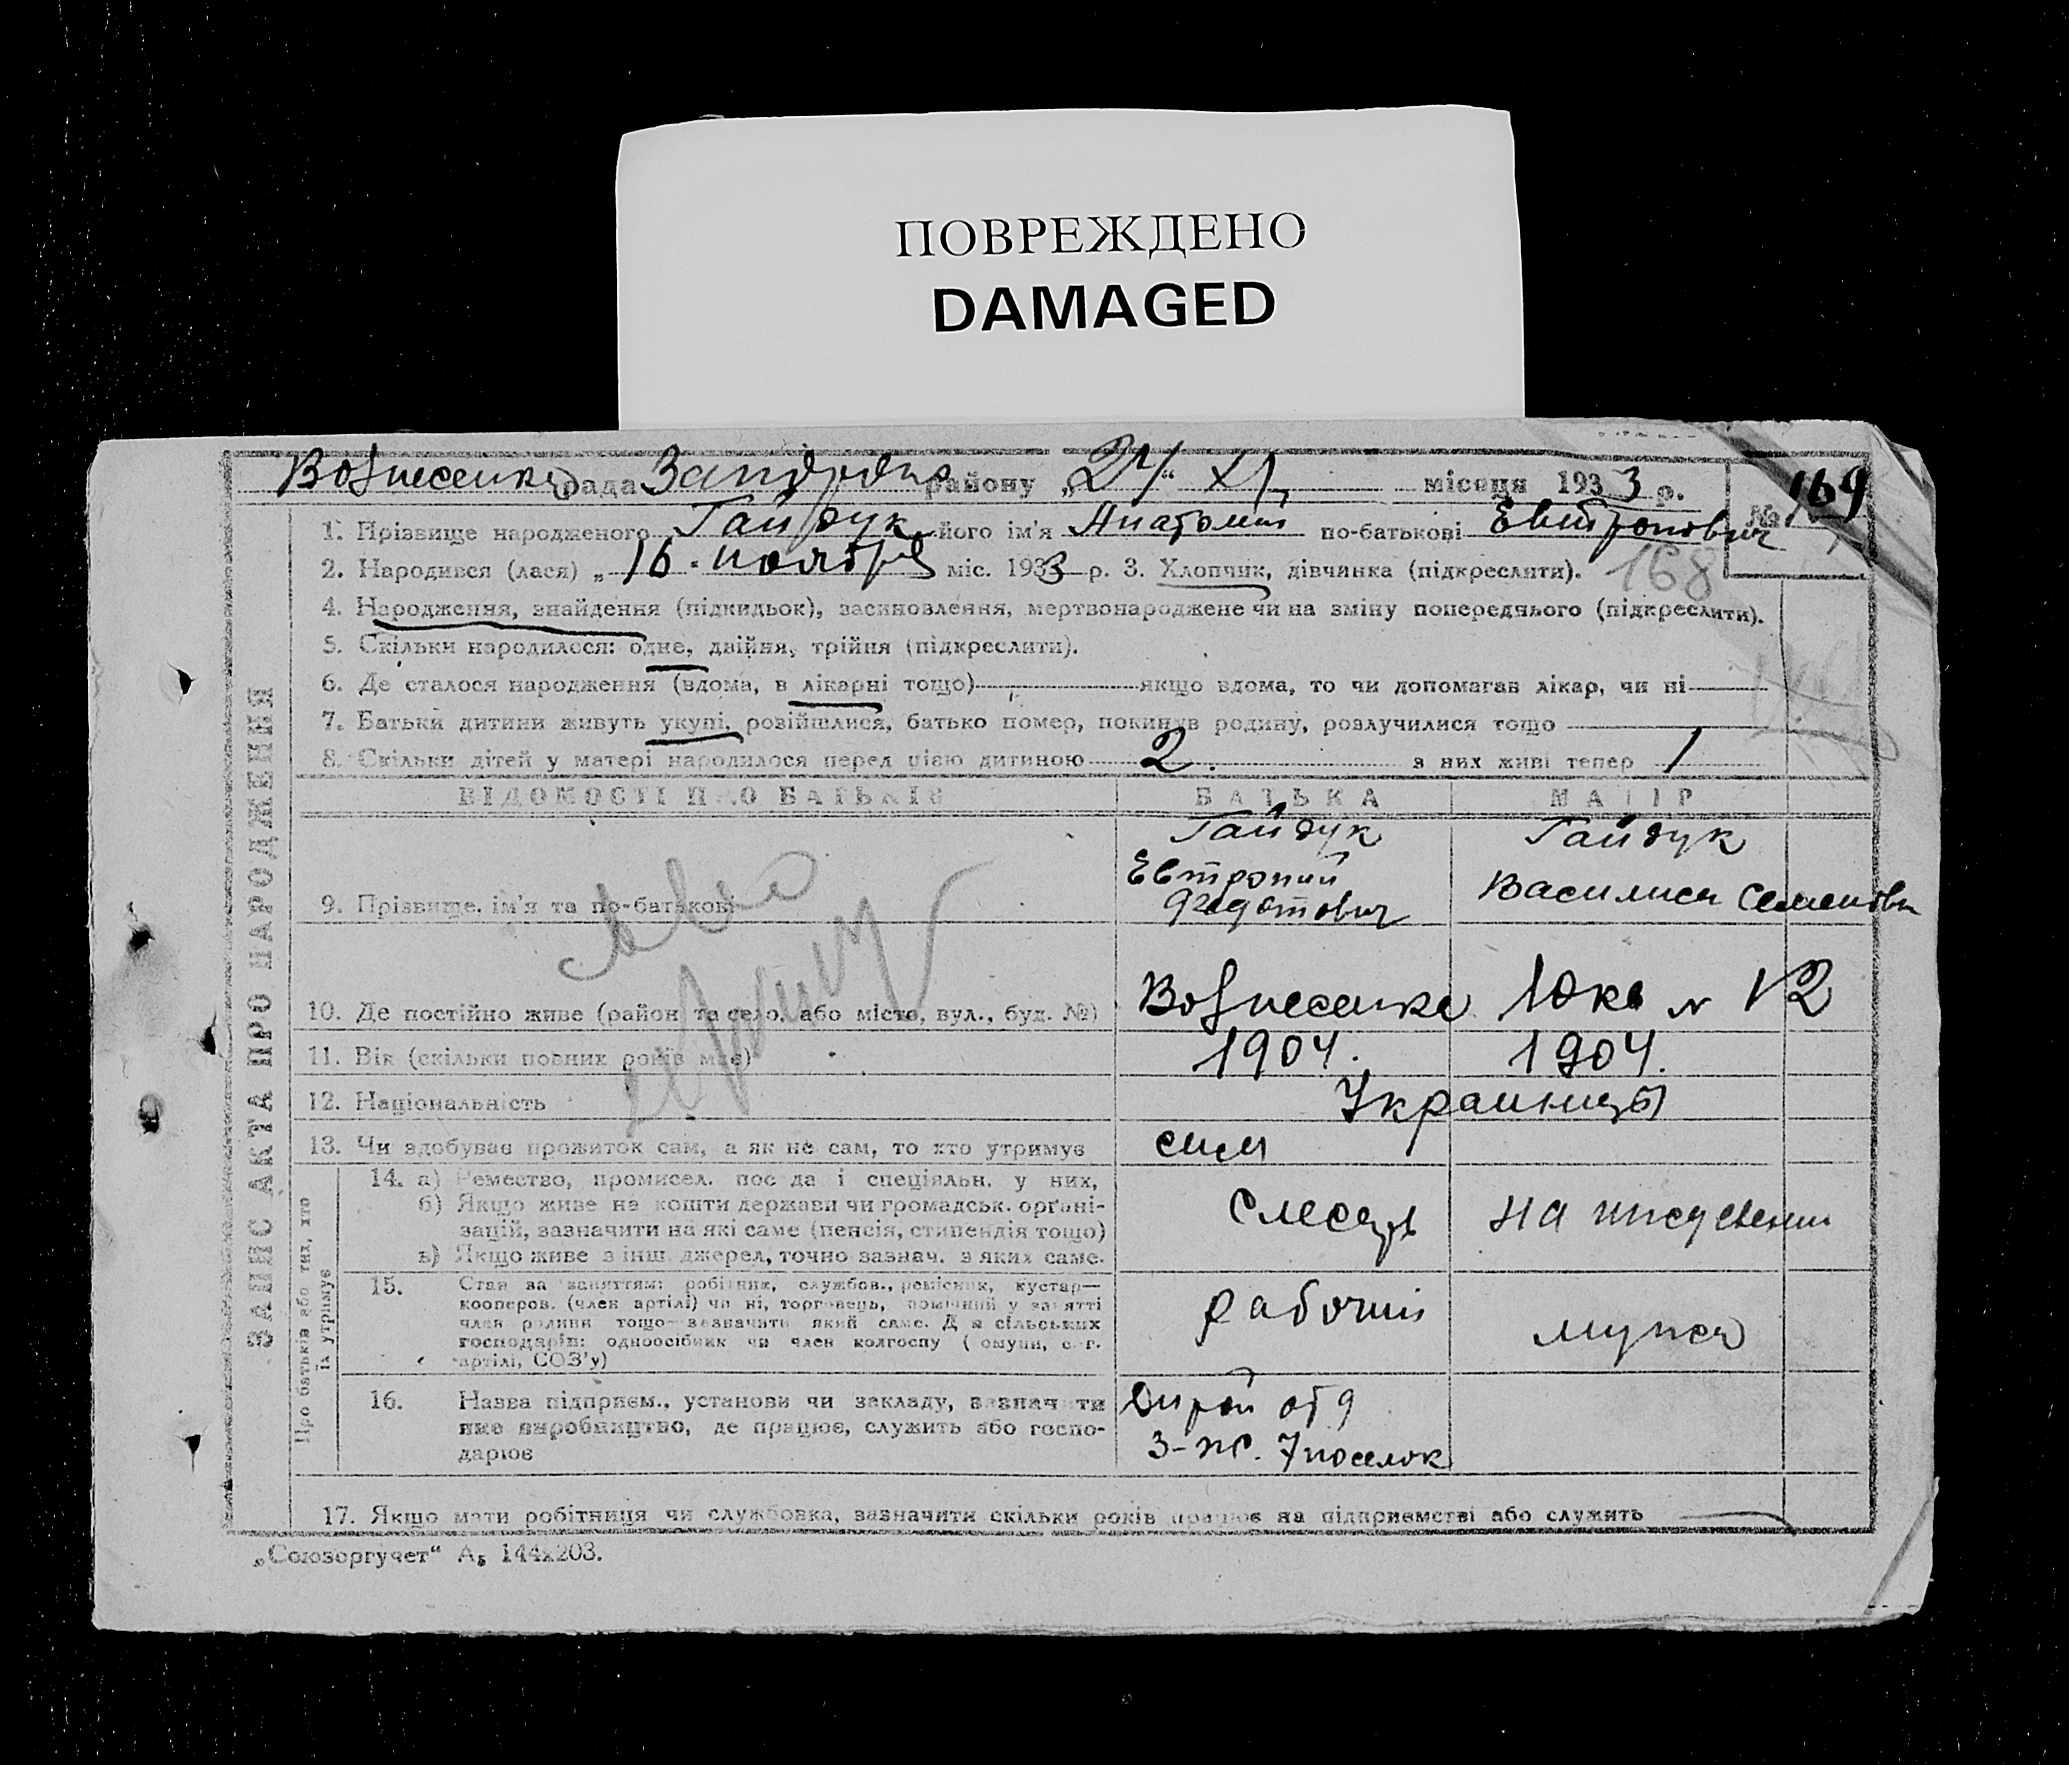 ПОВРЕЖДЕНО
DAMAGED
Вознесенка рада район у „24“ XI місяця 1933 р. № 169
1. Прізвище народженого Гайдук його ім'я Анатолий по-батькові Евтропович
168
2. Народився (лася) „16 ноября міс. 1933 р. 3. Хлопчик, дівчинка (підкреслити).
4. Народження, знайдення (підкидьок), засиновлення, мертвонароджене чи на зміну попереднього (підкреслити).
5. Скільки народилося: одне, двійня, трійня (підкреслити).
6. Де сталося народження (вдома, в лікарні тощо) якщо вдома, то чи допомагав лікар, чи ні
7. Батьки дитини живуть укупі, розійшлися, батько помер, покинув родину, розлучилися тощо
8. Скільки дітей у матері народилося перед цією дитиною 2. з них живі тепер 1
ВІДОМОСТІ ПРО БАТЬКІВ БАТЬКА МАТІР
9. Прізвище, ім'я та по-батькові Гайдук Евтропий Федотович Гайдук Василиса Семеновн
10. Де постійно живе (район та село, або місто, вул., буд. №) Вознесенка 10 кв N 12
11. Вік (скільки повних років має) 1904. 1904.
12. Національність Украинцы
13. Чи здобуває прожиток сам, а як не сам, то хто утримує сам
14. а) Ремество, промисел. пос да і спеціяльн. у них,
б) Якщо живе на кошти держави чи громадськ. орґані-
зацій, зазначити на які саме (пенсія, стипендія тощо)
в) Якщо живе з інш. джерел, точно зазнач. з яких саме.
Слесарь на иждевении
15. Стан за заняттям: робітник, службов., ремісник, кустар—
кооперов. (член артілі) чи ні, торговець, помічний у занятті
член родини тощо—зазначити який саме. Для сільських
господарів: одноосібник чи член колгоспу (комуни, с.-г.
артілі, СОЗ'у)
рабочий мужа
16. Назва підприєм., установи чи закладу, зазначити
яке виробництво, де працює, служить або госпо-
дарює
3- 7 поселок
17. Якщо мати робітниця чи службовка, зазначити скільки років працює на підприємстві або служить
ЗАПИС АКТА ПРО НАРОДЖЕННЯ
Про батьків або тих, хто
їх утримує
„Союзоргучет“ А5 144x203.